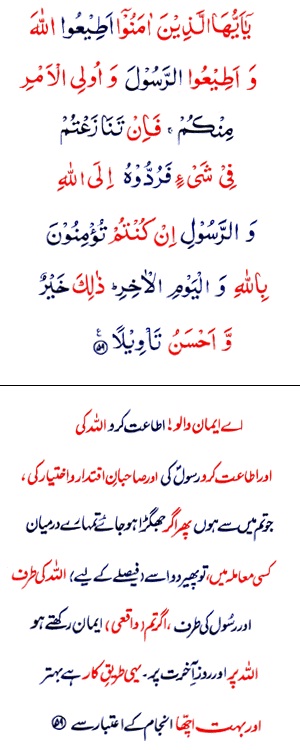 يٰۤاَيُّهَا الَّذِيْنَ اٰمَنُوْۤا اَطِيْعُوا اللّٰهَ
وَ اَطِيْعُوا الرَّسُوْلَ وَ اُولِي الْاَمْرِ
مِنْكُمْ ۚ فَاِنْ تَنَازَعْتُمْ
فِيْ شَيْءٍ فَرُدُّوْهُ اِلَى اللّٰهِ
وَ الرَّسُوْلِ اِنْ كُنْتُمْ تُؤْمِنُوْنَ
بِاللّٰهِ وَ الْيَوْمِ الْاٰخِرِ ؕ ذٰلِكَ خَيْرٌ
وَّ اَحْسَنُ تَاْوِيْلًا ۝۵۹
اے ایمان والو! اطاعت کرو اللہ کی
اور اطاعت کرو رسولؐ کی اور صاحبانِ اقتدار و اختیار کی،
جو تم میں سے ہوں پھر اگر جھگڑا ہو جائے تمہارے درمیان
کسی معاملہ میں، تو پھیر دو اسے (فیصلے کے لیے) اللہ کی طرف
اور رسُول کی طرف، اگر تم (واقعی) ایمان رکھتے ہو
اللہ پر اور روزِ آخرت پر۔ یہی طریقِ کار ہے بہتر
اور بہت اچھا انجام کے اعتبار سے ۝۵۹